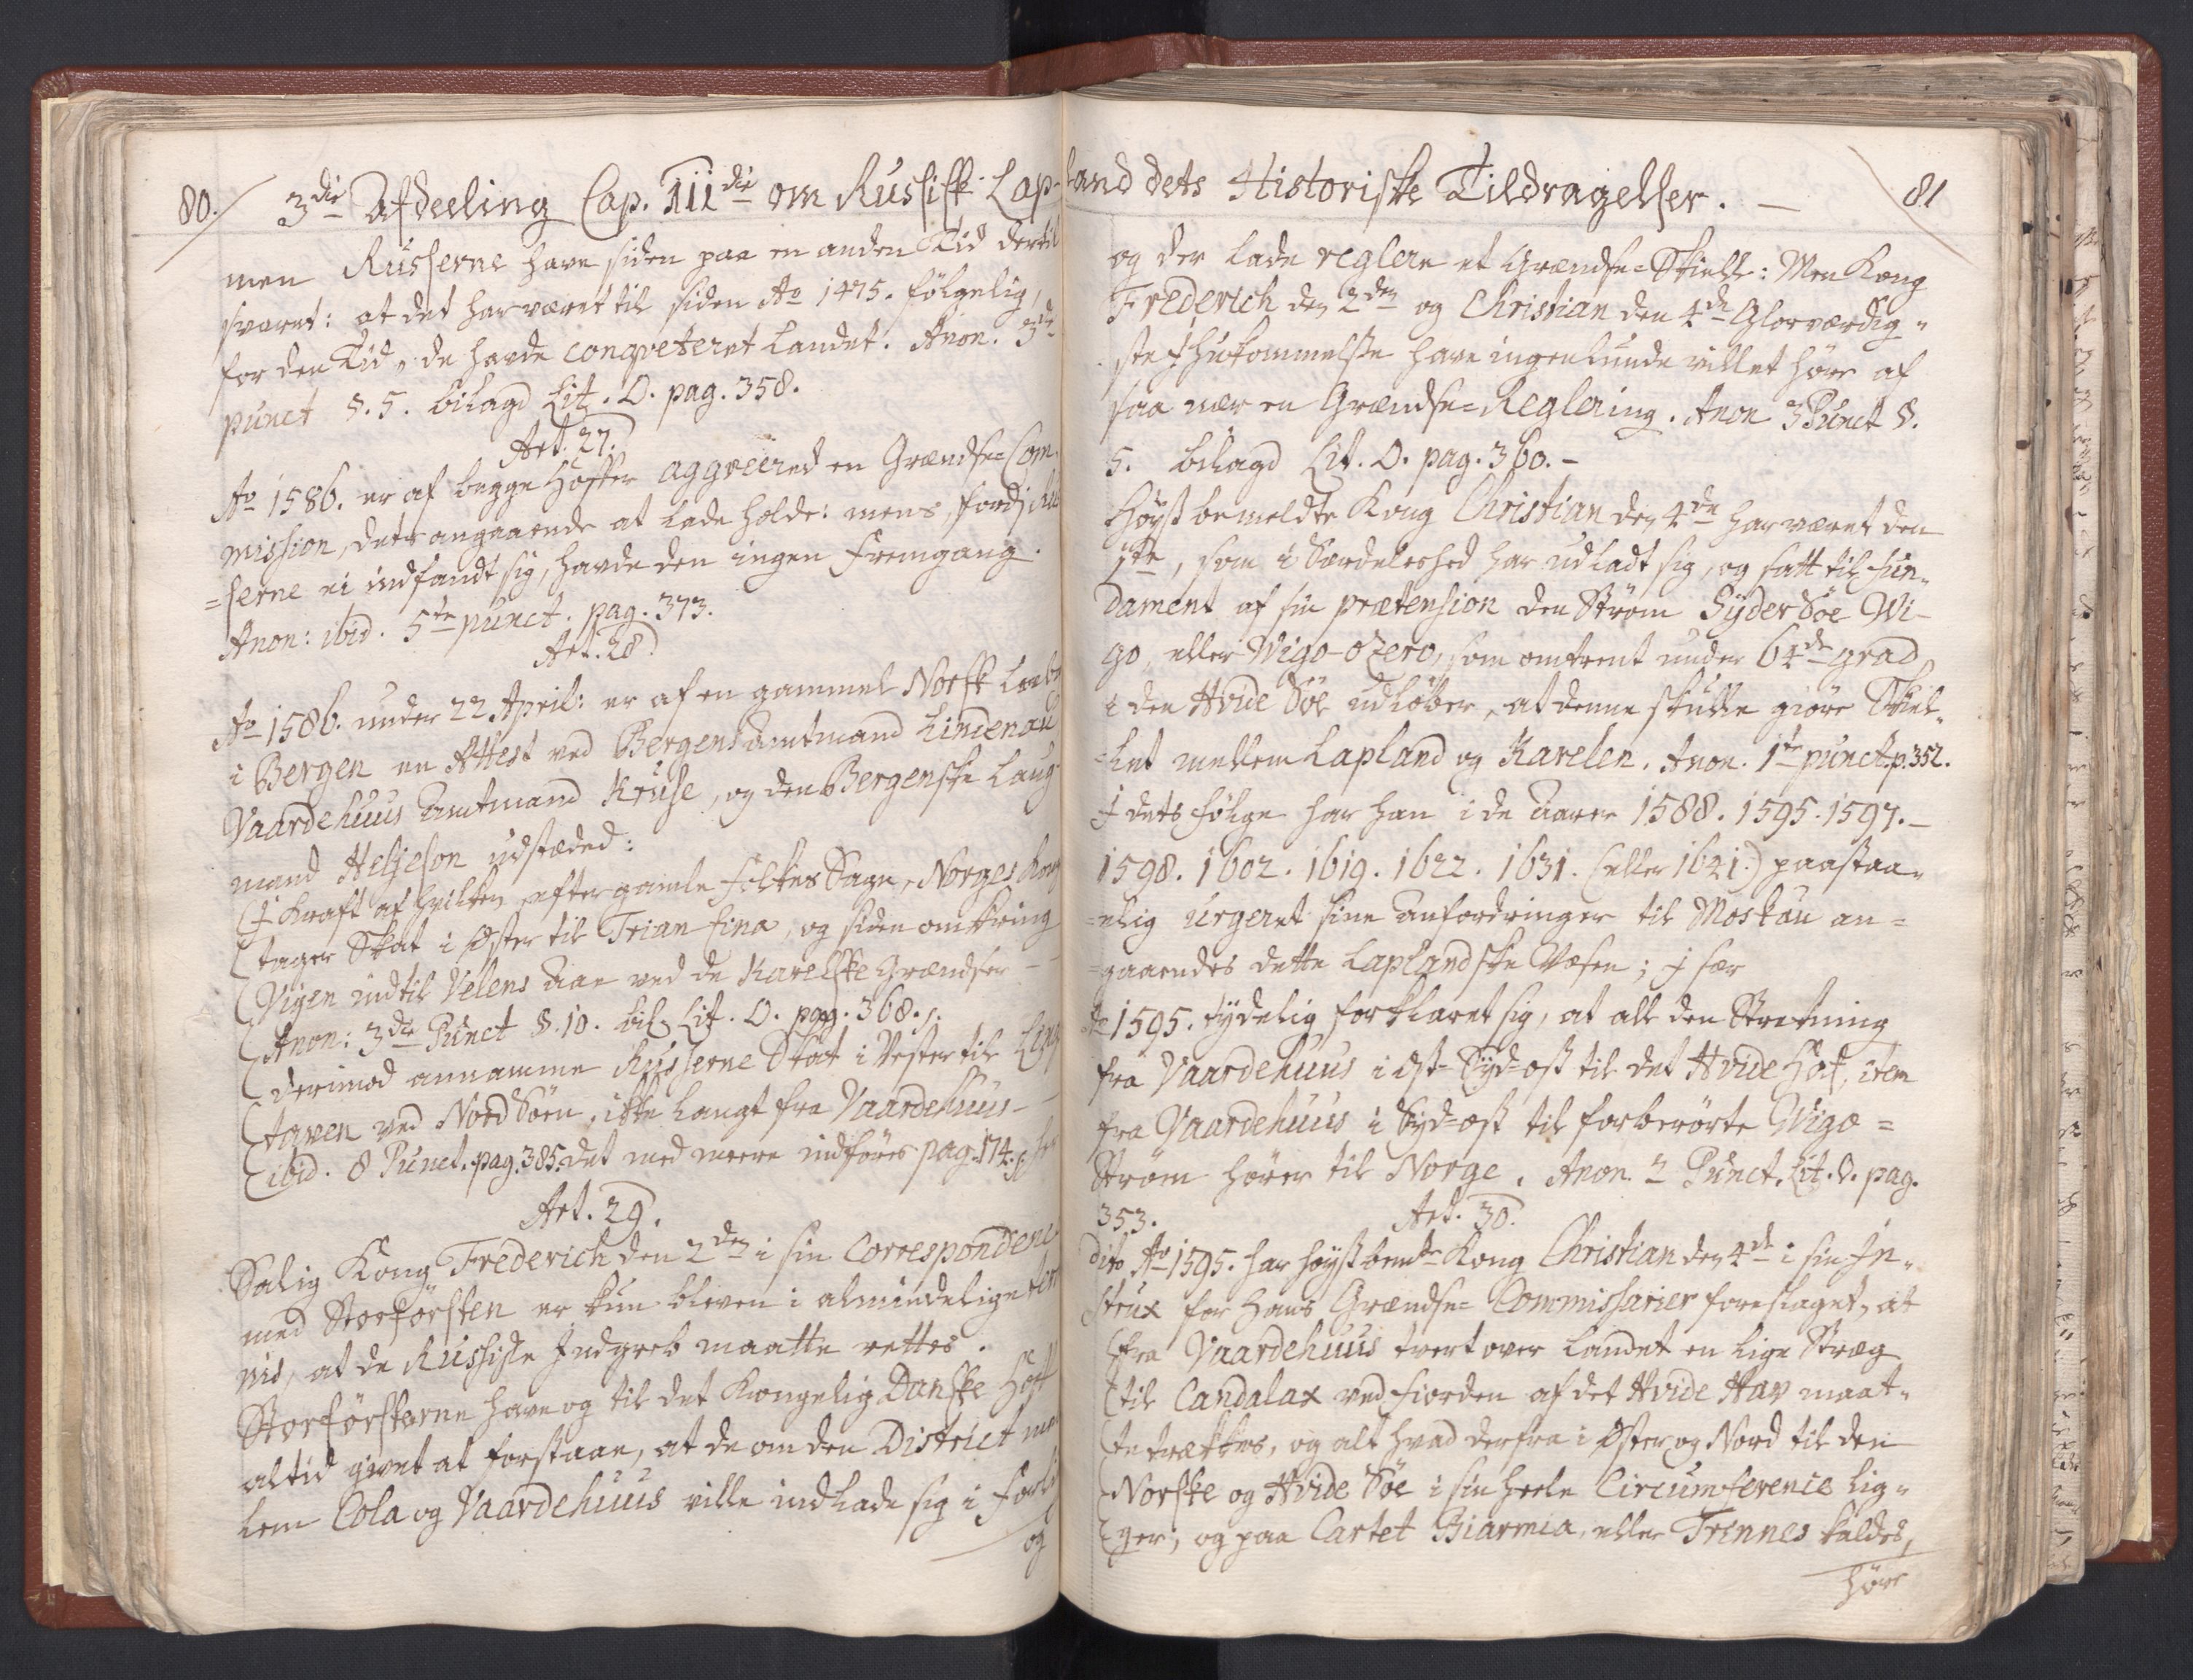 80.
3die Afdeeling Cap. IIIdie om Russisk Lap-
men Russerne have siden paa en anden Tid dertil
svaret: at det har været til siden Ao 1475. følgelig,
for den Tid, de havde conqveteret Landet. Anon. 3die
punct §. 5. bilagd Lit. O. pag. 358.
Art. 27.
Ao 1586. er af begge Hoffer aggreeret en Grændse-Com-
mission, dets angaaende at lade holde: mens, fordi Rus
=serne ei indfandt sig, havde den ingen Fremgang.
Anon: ibid. 5te punct. pag. 373.
Art. 28
Ao 1586. under 22 April: er af en gammel Norsk
i Bergen en Attest ved Bergens Amtmand Lindenau
Vaardehuus Amtmand Kruse, og den Bergenske Laug-
mand Heljeson udstæded:
I Kraft af hvilken, efter gamle Folkes Sagn, Norges Kong
tager Skat i Øster til Trianæina, og siden omkring
Vigen indtil Velens Aae ved de Karelske Grændser
Anon: 3die Punct §. 10. bil. Lit. O. pag. 368.
Derimod annamme Russerne Skat i Vester til
ved NordSöen, ikke langt fra Vaardehuus-
ibid. 8 Punct. pag. 385. det med meere indføres pag. 174.
Art. 29.
Salig Kong Frederich den 2den i sin Correspondence
med Storförsten er kun bleven i almindelige
nis, at de Russiske Indgreb maatte rettes.
Storförsterne have og til det Kongelig Danske Hoff
altid givet at forstaae, at de om den District mel
lem Cola og Vaardehuus ville indlade sig i
og
land dets Historiske Tildragelser. —
81
og der lade reglere et Grændse-Skiell: Men Kong
Frederich den 2den og Christian den 4de Glorværdig-
ste Ihukommelse have ingenlunde villet höre af
saa nær en Grændse-Reglering. Anon 3 Punct §.
5. bilagd Lit. O. pag. 360. -
Höystbemeldte Kong Christian den 4de har været den
1ste, som i Særdeleshed har udladt sig, og satt til fun-
dament af sin prætension den Ström Syder Söe Wi-
go, eller Wigo-ozero, som omtrent under 64de grad
i den Hvide Söe udlöber, at denne skulle giöre Skiel-
=let mellem Lapland og Karelen. Anon. 1te punct. p. 352.
I dets Fölge har han i de Aarer 1588. 1595. 1597. —
1598. 1602. 1619. 1622. 1631. (eller 1641.) paastaa-
=elig urgeret sine Anfordringer til Moskau an=
=gaaendes dette Laplandske Væsen; I sær
Ao 1595. tydelig forklaret sig, at all den Strekning
fra Vaardehuus i Ost-Syd-ost til det Hvide Haf, item
fra Vaardehuus i Syd-ost til forberörte Wigo=
Ström hörer til Norge. Anon. Punct. Lit. O. pag.
353.
Art. 30.
Dito Ao 1595. har höystbemte Kong Christian den 4de i sin In-
strux for hans Grændse-Commissarier foreslaget, at
fra Vaardehuus tvert over Landet en lige Streg
til Candalax ved Fiorden af det Hvide Hav maat-
te trækkes, og alt hvad derfra i Øster og Nord til den
Norske og Hvide Söe i sin heele Circumference lig-
ger, og paa Cartet Biarmia, eller Trennes kaldes,
höre